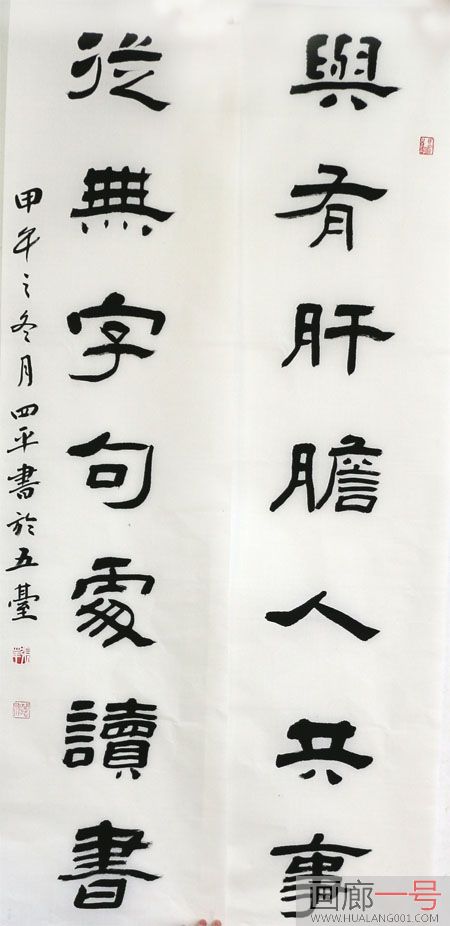 與有肝膽人共事
從無字句處讀書
甲午之冬月四平書於五臺
画廊一号
WWW.HUALANG001.COM